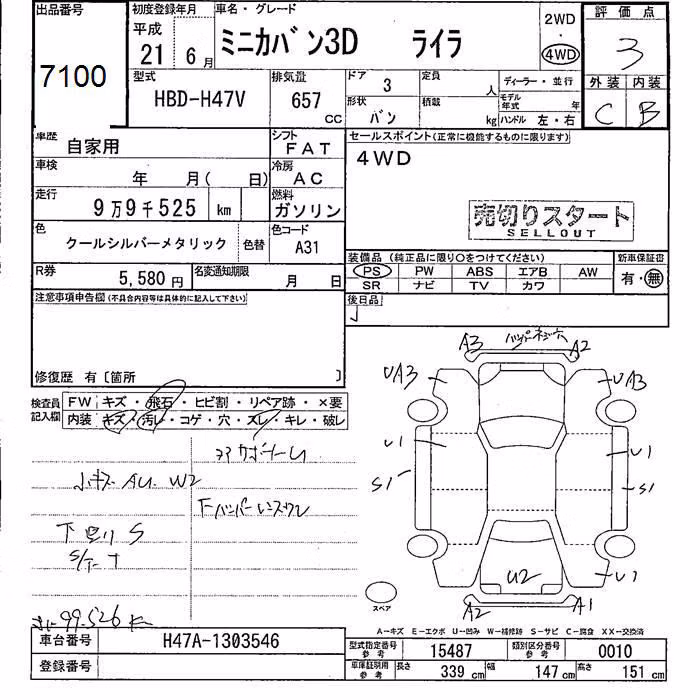 出品番号
7100
初度登録年月
平成
21 6月
車名・グレード
ミニカバン3D ライラ
2WD
・
4WD
評価点
3
型式
HBD-H47V
排気量
657
cc
ドア 3
形状
バン
定員
人
積載
kg
ディーラー・並行
モデル年式 年
ハンドル 左・右
外装 内装
C B
車歴
自家用
シフト
FAT
車検
年 月( 日)
冷房
AC
走行
9万9千525 km
燃料
ガソリン
色
クールシルバーメタリック
色替
色コード
A31
R券
5,580円
名変通知期限
月 日
セールスポイント(正常に機能するものに限ります)
4WD
売切りスタート
SELLOUT
装備品(純正品に限り○をつけてください)
PS PW ABS エアB AW
SR ナビ TV カワ
新車保証書
有・無
後日品
注意事項申告欄(不具合内容等は具体的に記入して下さい)
修復歴 有〔箇所 〕
検査員
記入欄
FW キズ・飛石・ヒビ割・リペア跡・×要
内装 キズ・汚レ・コゲ・穴・ズレ・キレ・破レ
小キズ AU. W2
Fバンパー
下回り S
99.526 K
A3
A2
UA3
UA3
U1
U1
S1
S1
U2
U1
A2
A1
スペア
A-キズ E-エクボ U-凹み W-補修跡 S-サビ C-腐食 XX-交換済
車台番号
H47A-1303546
登録番号
型式指定番号
参考
15487
類別区分番号
参考
0010
車庫証明用
参考
長さ 339 cm
幅 147 cm
高さ 151 cm